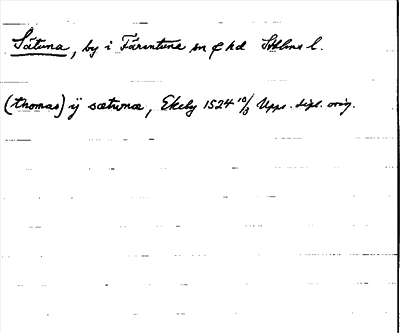 Sätuna, by i Färentuna sn & hd Sthlms l.
(thomas) ij sætuna, Ekeby 1524 10/3 Upps. dipl. orig.